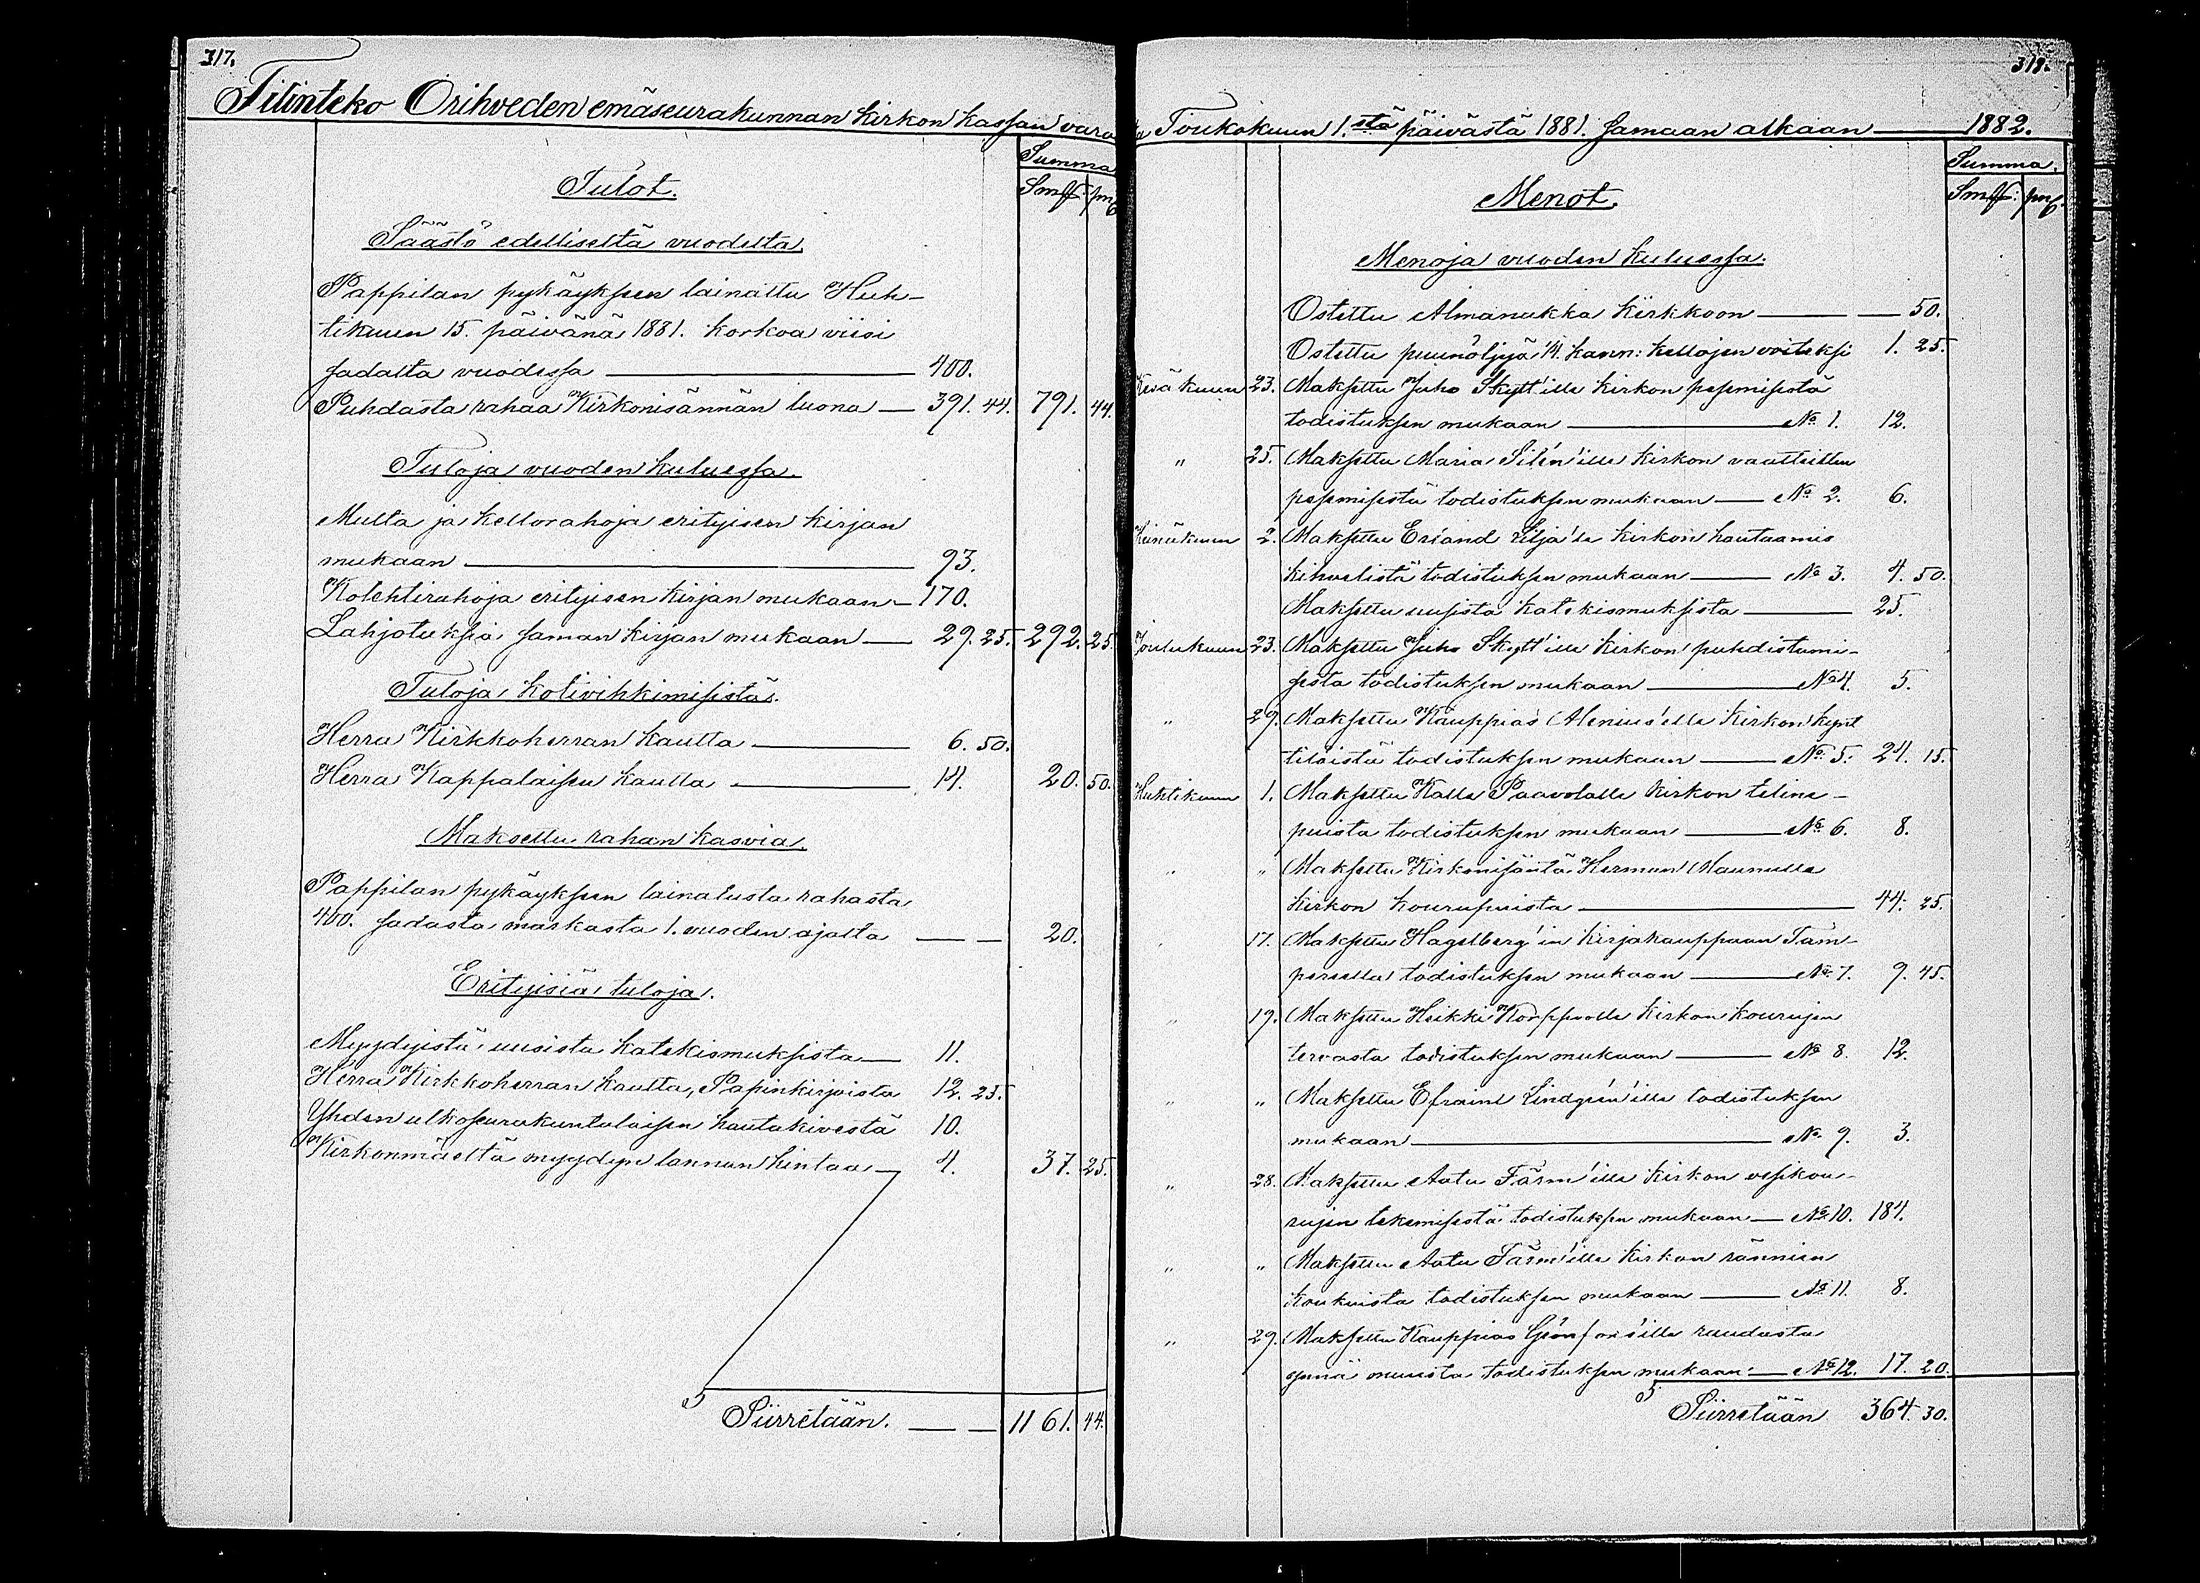 317.
Tilinteko Orihveden emäseurakunnan kirkon kassan vara
Summa
Tulot.
Smk: pnE
Säästö edelliseltä vuodelta.
Pappilan pykäyksen lainattu Huh-
tikuun 15. päivänä 1881. korkoa viisi
sadalta vuodessa — 400.
Puhdasta rahaa Kirkonisännän luona — 391. 44. 791. 44.
Tuloja vuoden kuluessa.
Multa ja kellorahoja erityisen kirjan
mukaan — 93.
Kolehtirahoja erityisen kirjan mukaan — 170.
Lahjotuksia saman kirjan mukaan — 29. 25. 292. 25.
Tuloja kotivihkimisistä.
Herra Kirkkoherran kautta — 6. 50.
Herra Kappalaisen kautta — 14. 20. 50.
Maksettu rahan kasvia.
Pappilan pykäyksen lainatusta rahasta
400. sadasta markasta 1. vuoden ajalta — — 20.
Erityisiä tuloja.
Myydyistä uusista katekismuksista — 11.
Herra Kirkkoherran kautta, Papinkirjoista 12. 25.
Yhden ulkoseurakuntalaisen hautakivestä 10.
Kirkonmäeltä myydyn lannan hintaa — 4. 37. 25.
Siirretään. — — 1161. 44.
319.
Toukokuun 1.stä päivästä 1881. samaan aikaan — 1882.
Summa.
Menot.
Smk: pnE.
Menoja vuoden kuluessa.
Ostettu Almanakka kirkkoon — — 50.
Ostettu puunöljyä 1/4. kann: kellojen voiteksi 1. 25.
Kesäkuun 23. Maksettu Juho Skytt'ille kirkon pesemisestä
todistuksen mukaan — No 1. 12.
" 25. Maksettu Maria Silén'ille kirkon vaatteitten
pesemisestä todistuksen mukaan — No 2. 6.
Heinäkuun 2. Maksettu Erland Lilja'le kirkon hautaamis
kihvelistä todistuksen mukaan — No 3. 4. 50.
Maksettu uusista katekismuksista — 25.
Joulukuun 23. Maksettu Juho Skytt'ille kirkon puhdistami-
sesta todistuksen mukaan — No 4. 5.
" 29. Maksettu Kauppias Alenius'elle kirkon kynt
tilöistä todistuksen mukaan — No 5. 24. 15.
Huhtikuun 1. Maksettu Kalle Paavolalle kirkon teline-
puista todistuksen mukaan — No 6. 8.
" " Maksettu Kirkonisäntä Herman Maunulle
kirkon kourupuista — 44. 25.
17. Maksettu Hagelberg'in kirjakauppaan Tam-
pereella todistuksen mukaan — No 7. 9. 45.
" 19. Maksettu Heikki Korppoolle kirkon kourujen
tervasta todistuksen mukaan — No 8. 12.
" " Maksettu Efraim Lindgren'ille todistuksen
mukaan — No 9. 3.
" 28. Maksettu Aatu Färm'ille kirkon vesikou-
rujen tekemisestä todistuksen mukaan — No 10. 184.
" " Maksettu Aatu Färm'ille kirkon rännien
koukuista todistuksen mukaan — No 11. 8.
" 29. Maksettu Kauppias Grönfors'ille raudasta
mukaan — No 12. 17. 20.
Siirretään 364. 30.